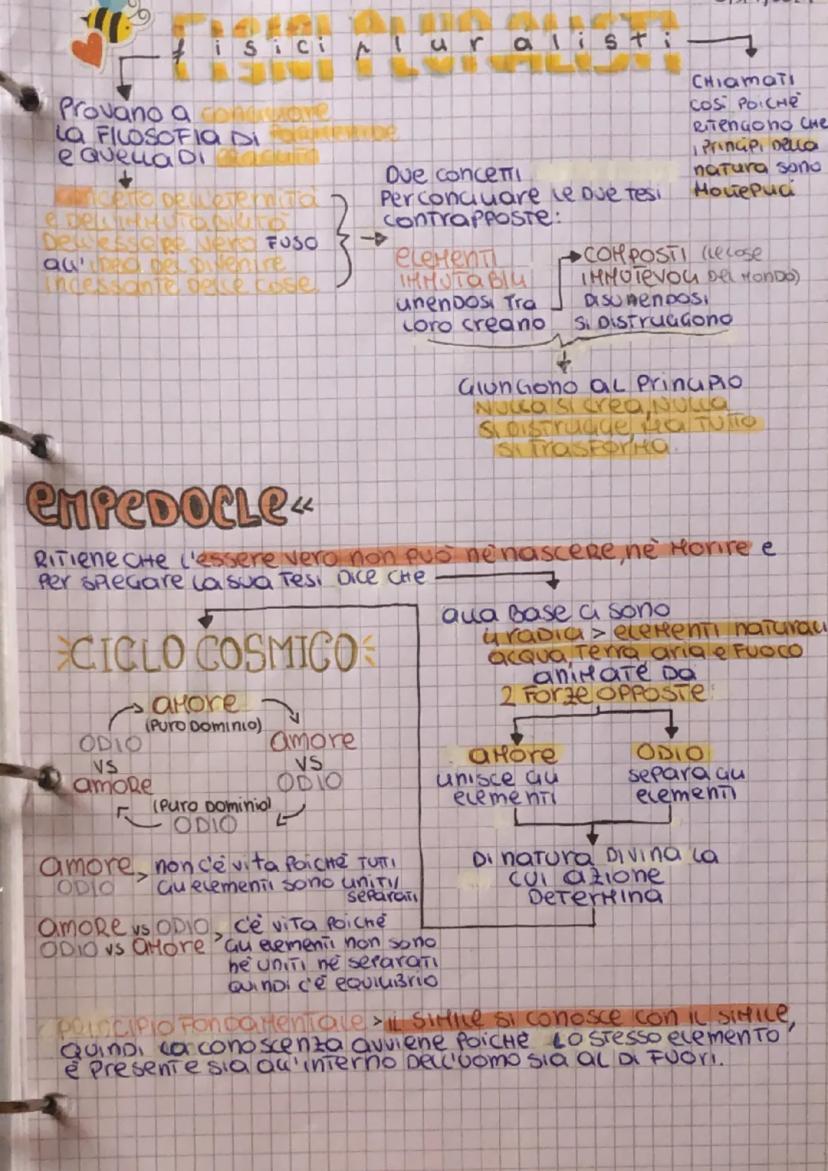 fisici pluralisti
Provano a conciliare
la filosofia di Parmenide
e quella di Eraclito
concetto dell'eternità
e dell'immutabilità
dell'essere vero fuso
all'idea del divenire
incessante delle cose
chiamati
così poichè
ritengono che
i principi della
natura sono
molteplici
Due concetti
per conciliare le due tesi
contrapposte:
elementi
immutabili
unendosi tra
loro creano
composti (le cose
immutevoli del mondo)
disunendosi
si distruggono
giungono al principio
nulla si crea, nulla
si distrugge, ma tutto
si trasforma.
EMPEDOCLE «
Ritiene che l'essere vero non può nè nascere, nè morire e
per spiegare la sua tesi dice che
alla base ci sono
4 radici > elementi naturali
acqua, terra aria e fuoco
animate da
2 forze opposte:
amore
unisce gli
elementi
odio
separa gli
elementi
Di natura divina la
cui azione
determina
CICLO COSMICO
amore
(puro dominio)
odio
vs
amore
amore
vs
odio
(puro dominio)
odio
amore > non c'è vita poichè tutti
odio gli elementi sono uniti/
separati
amore vs odio > c'è vita poichè
odio vs amore gli elementi non sono
nè uniti nè separati
quindi c'è equilibrio
principio fondamentale > il simile si conosce con il simile,
quindi la conoscenza avviene poichè lo stesso elemento
è presente sia all'interno dell'uomo sia al di fuori.